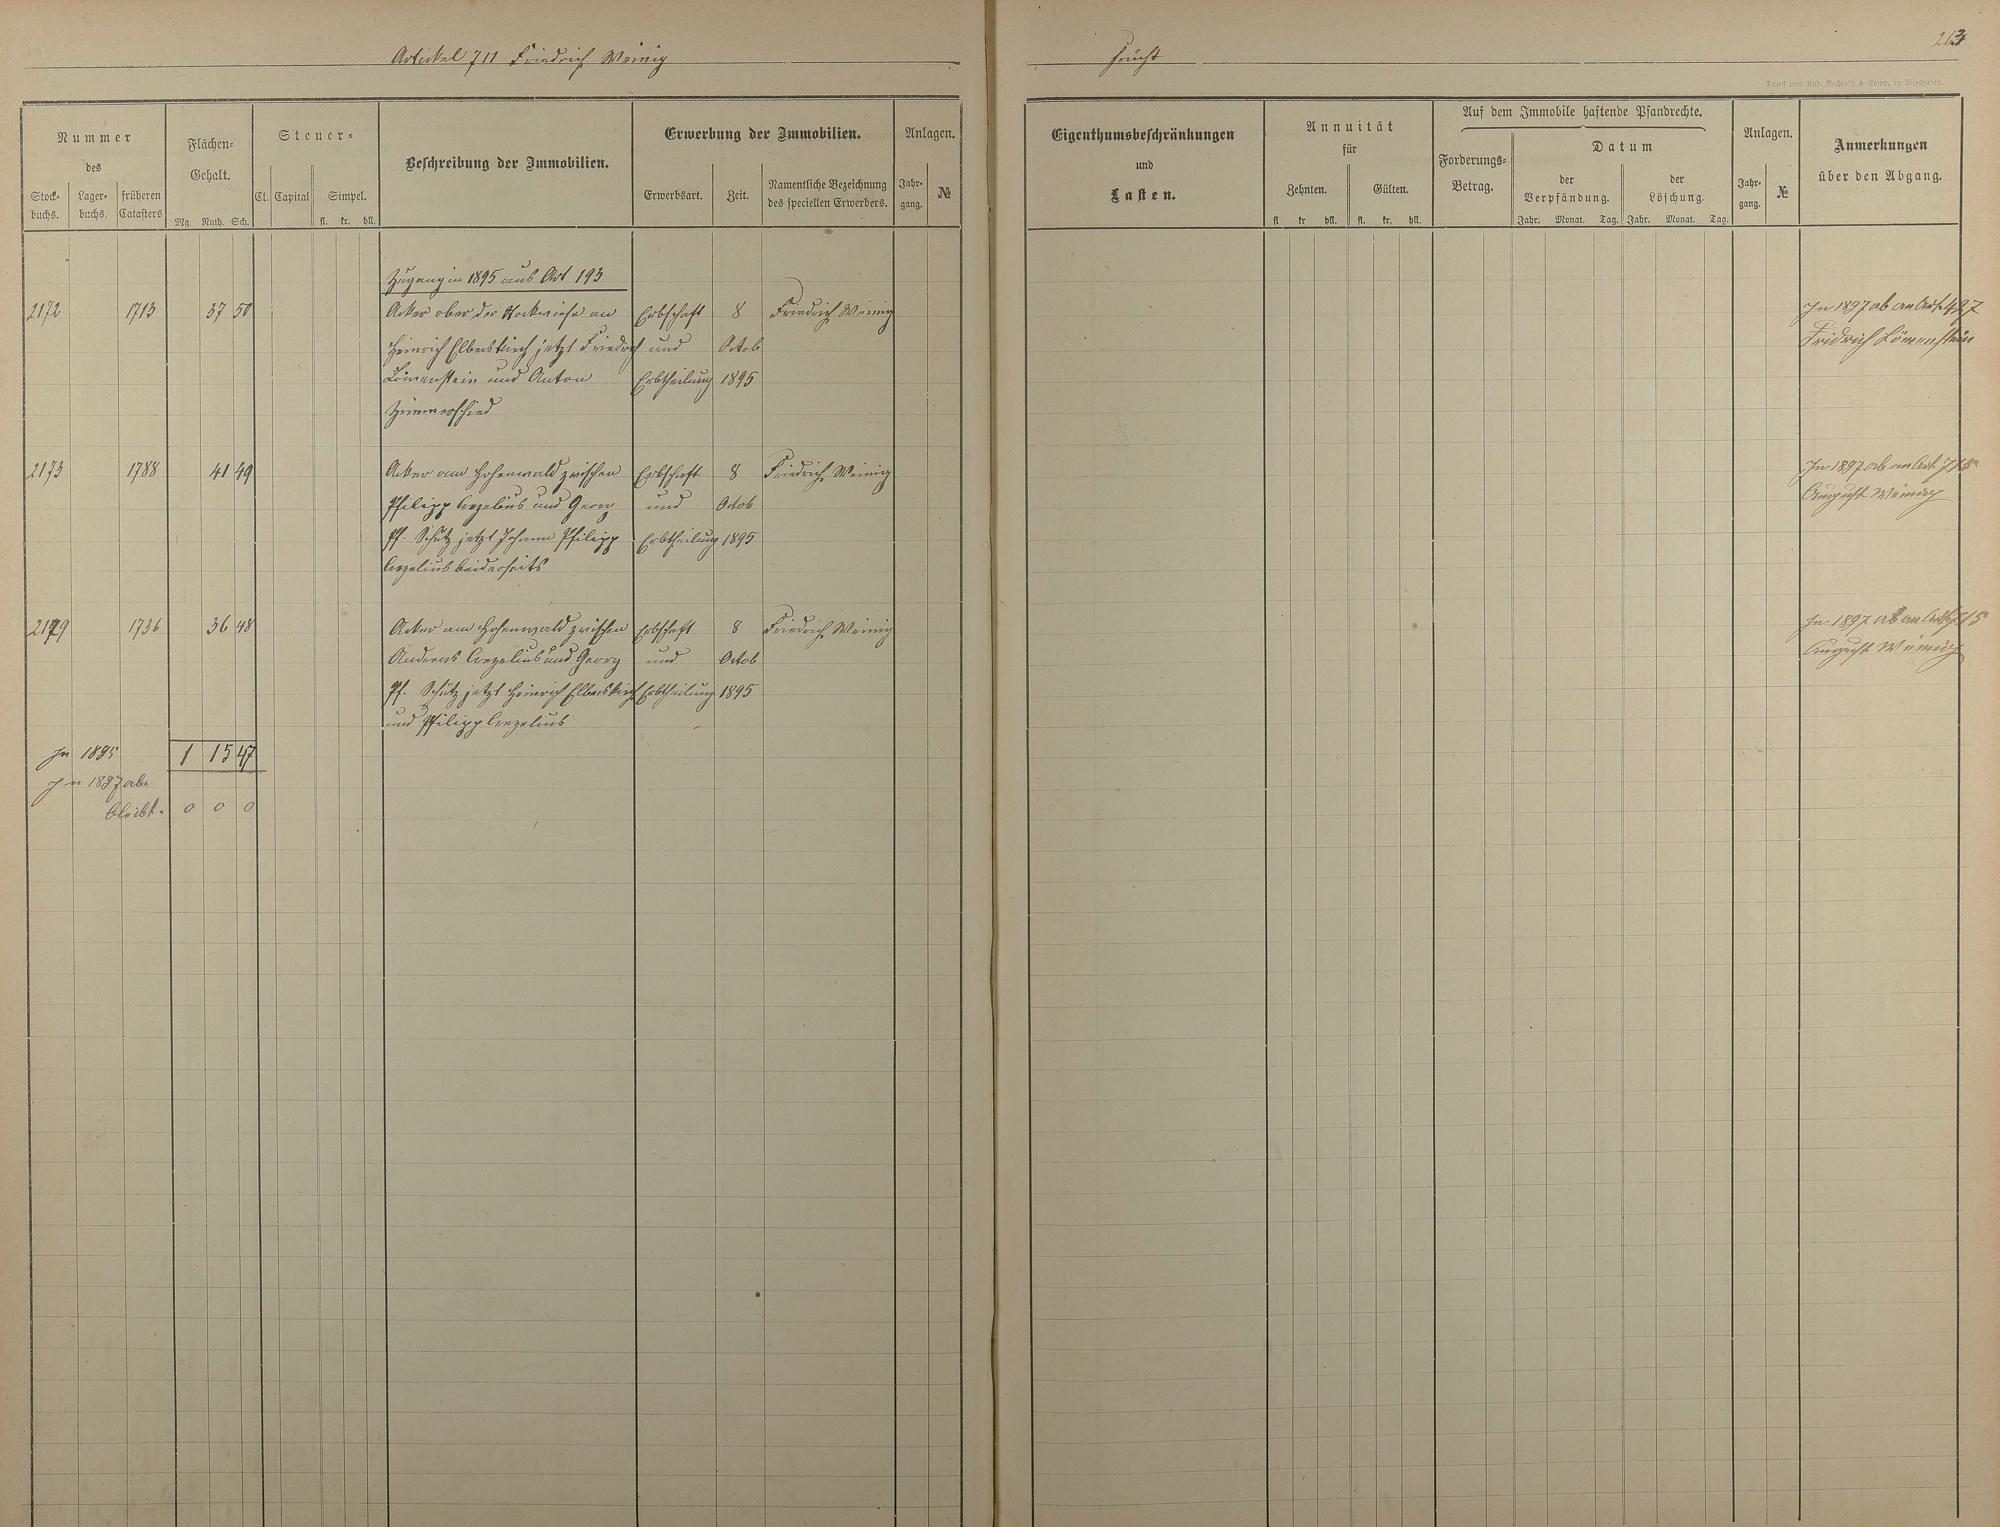 Artikel 711 Friedrich Weinig
Frücht
263
Druck von Rud. Bechtold & Comp. in Wiesbaden.
Nummer
des
Stock-
buchs.
Lager-
buchs.
früheren
Catasters
Flächen-
Gehalt.
Mg. Ruth. Sch.
Steuer-
Cl. Capital
Simpel.
fl. kr. hll.
Beschreibung der Immobilien.
Erwerbung der Immobilien.
Erwerbsart.
Zeit.
Namentliche Bezeichnung
des speciellen Erwerbers.
Anlagen.
Jahr-
gang.
№
Eigenthumsbeschränkungen
und
Lasten.
Annuität
für
Zehnten.
Gülten.
fl. kr. hll. fl. kr. hll.
Auf dem Immobile haftende Pfandrechte.
Forderungs-
Betrag.
Datum
der
Verpfändung.
der
Löschung.
Jahr. Monat. Tag. Jahr. Monat. Tag.
Anlagen.
Jahr-
gang.
№
Anmerkungen
über den Abgang.
Zugang in 1895 aus Art 193
2172 1713 37 50 Acker ober der wiese an Erbschaft 8 Friedrich Weinig In 1897 ab an Art. 497
Heinrich Elberskirch jetzt Friedrich und Octob Fridrich Löwenstein
Löwenstein und Anton Erbtheilung 1895
Zimmerschied
2173 1788 41 49 Acker am Hohenwald zwischen Erbschaft 8 Friedrich Weinig In 1897 ab an Art. 715
Philipp Crezelius und Georg und Octob August Weinig
Pf. Schütz jetzt Johann Philipp Erbtheilung 1895
Crezelius beiderseits
2179 1736 36 48 Acker am Hohenwald zwischen Erbschaft 8 Friedrich Weinig In 1897 ab an Art 715
Andreas Crezelius und Georg und Octob August Weinig
Pf. Schütz jetzt Heinrich Elberskirch Erbtheilung 1895
und Philipp Crezelius
In 1895 1 15 47
In 1897 ab
bleibt. 0 0 0